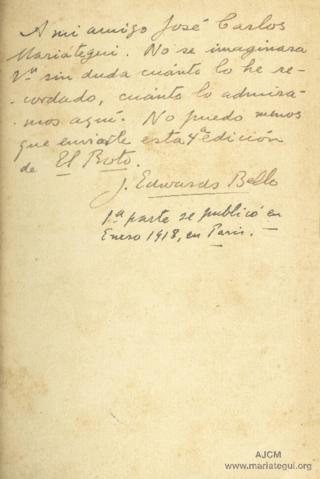 A mi amigo José Carlos
Mariátegui. No se imaginara
Vd sin duda cuánto lo he re-
-cordado, cuánto lo admira-
-mos aquí. No puedo menos
que enviarle esta 4ª edición
de El Roto.
J. Edwards Bello
1ª parte se publicó en
Enero 1918, en Paris.
AJCM
www.mariategui.org